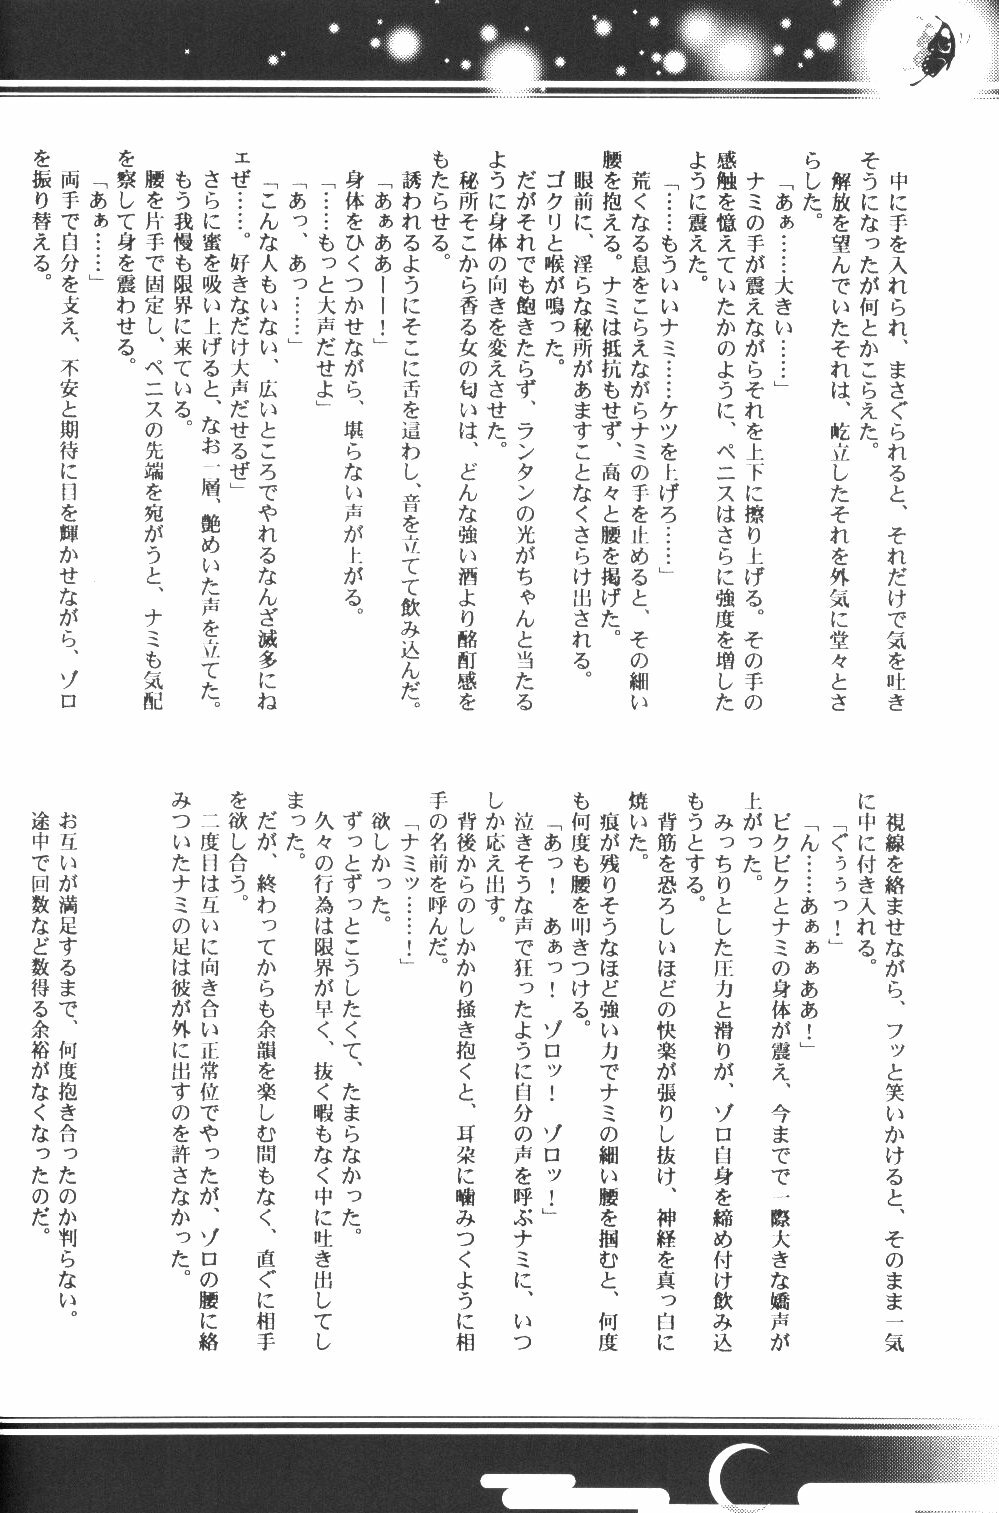 中に手を入れられ、まさぐられると、それだけで気を吐き
そうになったが何とかこらえた。
解放を望んでいたそれは、屹立したそれを外気に堂々とさ
らした。
「あぁ……大きい……」
ナミの手が震えながらそれを上下に擦り上げる。その手の
感触を憶えていたかのように、ペニスはさらに強度を増した
ように震えた。
「……もういいナミ……ケツを上げろ……」
荒くなる息をこらえながらナミの手を止めると、その細い
腰を抱える。ナミは抵抗もせず、高々と腰を掲げた。
眼前に、淫らな秘所があますことなくさらけ出される。
ゴクリと喉が鳴った。
だがそれでも飽きたらず、ランタンの光がちゃんと当たる
ように身体の向きを変えさせた。
秘所そこから香る女の匂いは、どんな強い酒より酩酊感を
もたらせる。
誘われるようにそこに舌を這わし、音を立てて飲み込んだ。
「あぁああーー！」
身体をひくつかせながら、堪らない声が上がる。
「……もっと大声だせよ」
「あっ、あっ……」
「こんな人もいない、広いところでやれるなんざ滅多にね
エぜ……。好きなだけ大声だせるぜ」
さらに蜜を吸い上げると、なお一層、艶めいた声を立てた。
もう我慢も限界に来ている。
腰を片手で固定し、ペニスの先端を宛がうと、ナミも気配
を察して身を震わせる。
「あぁ……」
両手で自分を支え、不安と期待に目を輝かせながら、ゾロ
を振り替える。
視線を絡ませながら、フッと笑いかけると、そのまま一気
に中に付き入れる。
「ぐぅぅっ！」
「ん……あぁぁぁああ！」
ビクビクとナミの身体が震え、今までで一際大きな嬌声が
上がった。
みっちりとした圧力と滑りが、ゾロ自身を締め付け飲み込
もうとする。
背筋を恐ろしいほどの快楽が張りし抜け、神経を真っ白に
焼いた。
痕が残りそうなほど強い力でナミの細い腰を掴むと、何度
も何度も腰を叩きつける。
「あっ！　あぁっ！　ゾロッ！　ゾロッ！」
泣きそうな声で狂ったように自分の声を呼ぶナミに、いつ
しか応え出す。
背後からのしかかり掻き抱くと、耳朶に噛みつくように相
手の名前を呼んだ。
「ナミッ……！」
欲しかった。
ずっとずっとこうしたくて、たまらなかった。
久々の行為は限界が早く、抜く暇もなく中に吐き出してし
まった。
だが、終わってからも余韻を楽しむ間もなく、直ぐに相手
を欲し合う。
二度目は互いに向き合い正常位でやったが、ゾロの腰に絡
みついたナミの足は彼が外に出すのを許さなかった。
お互いが満足するまで、何度抱き合ったのか判らない。
途中で回数など数得る余裕がなくなったのだ。